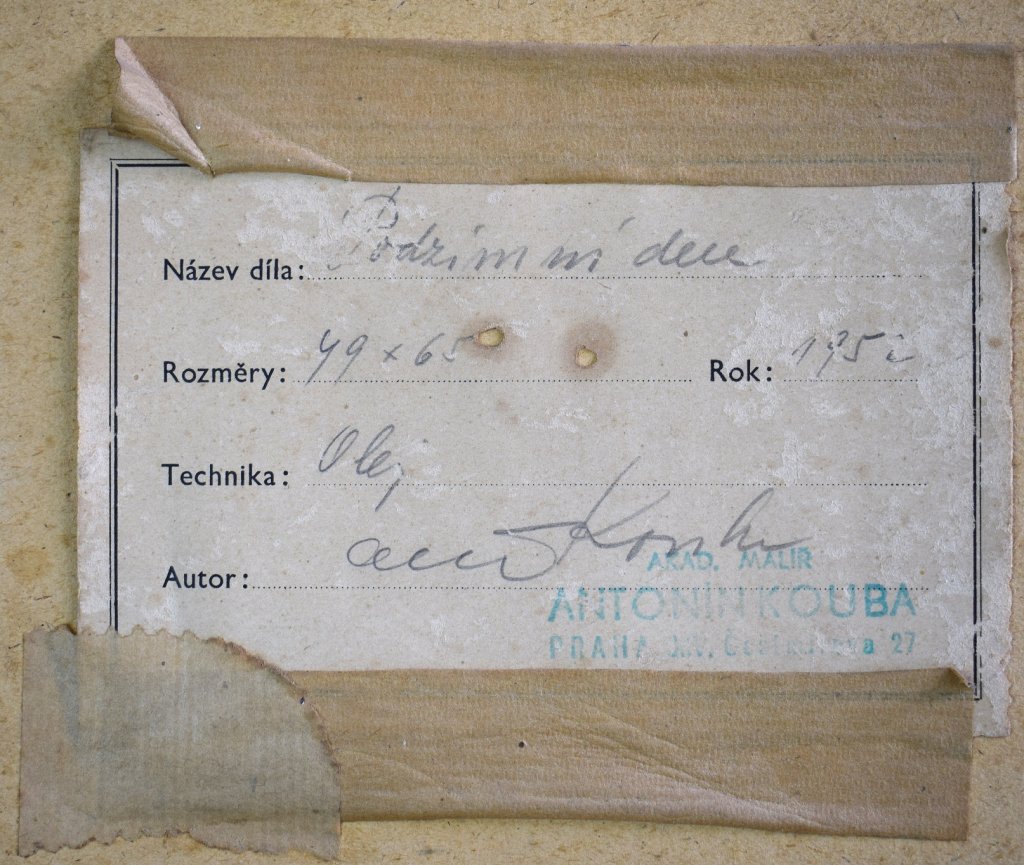 Název díla: Podzimní den
Rozměry: 49 x 65 Rok: 1952
Technika: Olej
Autor: Ant Kouba
AKAD. MALÍŘ
ANTONÍN KOUBA
PRAHA XIV, 27